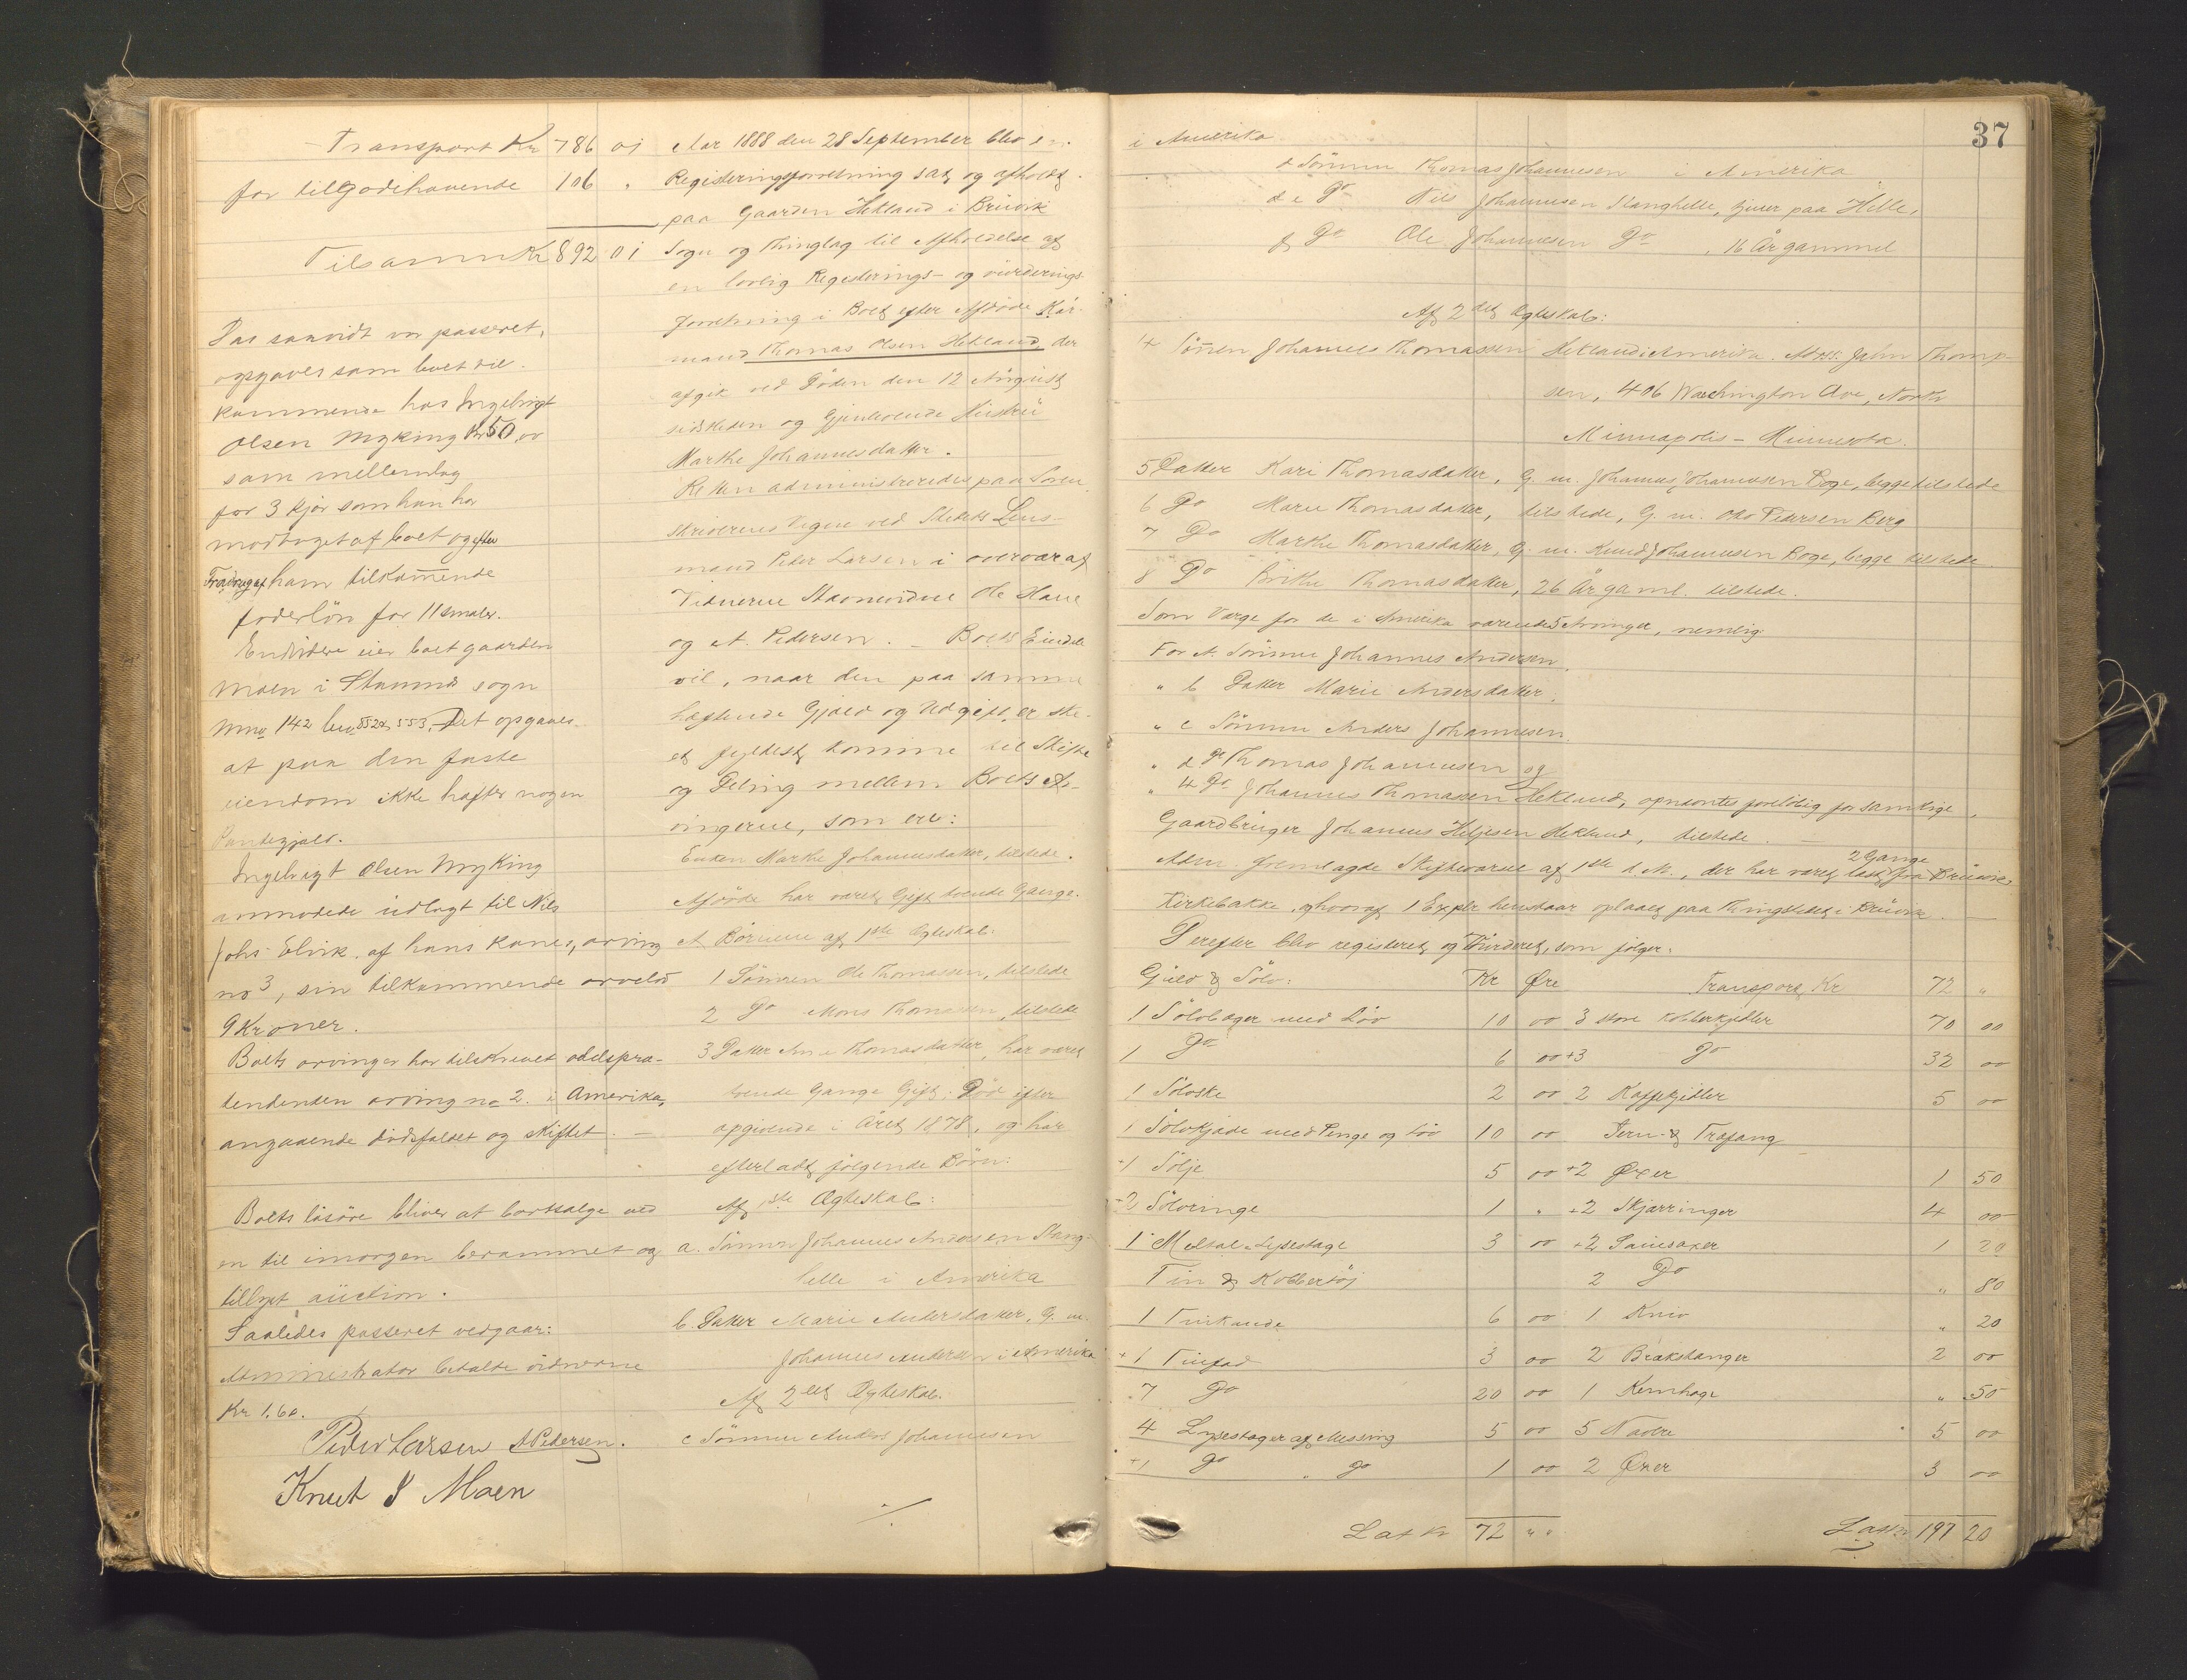 Transport Kr 786 01
for tilgodehavende 106 "
Tilsammen Kr 892 01
Das saavidt var passeret,
opgaves som boet til-
kommende hos Ingebrigt
Olsen Myking Kr 50,00
som mellemlag
for 3 kjør som han har
modtaget af boet og efter
Fradrag af ham tilkommende
foderløn for 11 smaler.
Endvidere eier boet gaarden
Moen i Stamnes sogn
Mno 142 bno 552 & 553. Det opgaves
at paa den faste
eiendom ikke hefter nogen
Pantegjæld.
Ingebrigt Olsen Myking
anmodede udlagt til Nils
Johs. Elvik af hans kones, arving
no 3, sin tilkommende arvelod
9 Kroner.
Boets arvinger har tilskrevet odelspræ-
tendenten arving no 2. i Amerika,
angaaende dødsfaldet og skiftet. —
Boets løsøre bliver at bortsælge ved
en til imorgen berammet og
tillyst auction.
Saaledes passeret vedgaar:
Administrator betalte vidnerne
Kr 1,60.
Peder Larsen A Pedersen.
Knut S Moen
Aar 1888 den 28 September blev en
Registeringsforretning sat og afholdt
paa Gaarden Hekland i Bruvik
Sogn og Thinglag til Afholdelse af
en lovlig Registerings- og vurderings-
forretning i Boet efter Afdøde Kår-
mand Thomas Olsen Hekland, der
afgik ved Døden den 12 August
sidstleden og Gjenlevende Hustru
Marthe Johannesdatter.
Retten administreredes paa Soren-
skriverens Vegne ved Stedets Lens-
mand Peder Larsen i overvær af
Vidnerne Stavnevidne Ole Hane
og A. Pedersen. — Boets Eiendele
vil, naar den paa samme
heftende Gjæld og Udgift er ske-
et fyldest komme til Skifte
og Deling mellem Boets Ar-
vingerne, som ere:
Enken Marthe Johannesdatter, tilstede.
Afdøde har været Gift tvende Gange.
A Børnene af 1ste Ægteskab:
1 Sønnen Ole Thomassen, tilstede
2 Do Mons Thomassen, tilstede
3 Datter Ane Thomasdatter, har været
tvende Gange Gift: Død efter
opgivende i Året 1878, og har
efterladt følgende Børn:
Af 1ste Ægteskab:
a. Sønnen Johannes Andersen Stang-
helle i Amerika
b. Datter Marie Andersdatter, G. m.
Johannes Andersen i Amerika
Af 2det Ægteskab.
c Sønnen Anders Johannesen
37
i Amerika
d Sønnen Thomas Johannesen i Amerika
d e Do Nils Johannesen Stanghelle, tjener paa Helle,
f Do Ole Johannesen Do, 16 År gammel
Af 2det Ægteskab:
4 Sønnen Johannes Thomassen Hekland i Amerika. Adrs: John Thomp-
sen, 406 Waschington Ave, North
Minnapolis – Minnesota.
5 Datter Kari Thomasdatter, G. m. Johannes Johannesen Boge, begge tilstede
6 Do Marie Thomasdatter, tilstede, G. m. Otto Pedersen Berg
7 Do Marthe Thomasdatter, G. m. Knud Johannesen Boge, begge tilstede
8 Do Brithe Thomasdatter, 26 År gaml. tilstede.
Som Værge for de i Amerika værende 5 Arvinger, nemlig
For A. Sønnen Johannes Andersen
" b Datter Marie Andersdatter,
" c Sønnen Anders Johannesen
" d Do Thomas Johannesen og
" 4 Do Johannes Thomassen Hekland, opnævntes foreløbig for samtlige
Gaardbruger Johannes Heljesen Hekland, tilstede. —
Adm. fremlagde Skiftevarsel af 1ste d. M., der har været læst 2 Gange fra Bruviks
Kirkebakke, og hvoraf 1 Explr henstaar oplaaet paa Thingstedet i Bruvik. —
Derefter blev registeret og Vurderet, som følger:
Guld & Sølv: Kr Øre
1 Sølvbæger med Løv 10 00
1 Do 6 00
1 Sølvske 2 00
1 Sølvkjæde med Penge og Løv 10 00
+1 Sølje 5 00
+2 Sølvringe 1 "
1 Metal Lysestage 3 00
Tin & Kobbertøj
1 Tinkande 6 00
+1 Tinfad 3 00
7 Do 20 00
4 Lysestager af Messing 5 00
+1 Do " Do 1 00
Lat Kr 72 " "
Transport Kr 72 "
3 store Kobberkjedler 70 00
+3 Do 32 00
2 Kaffekjedler 5 00
Jern- & Træfang
+2 Øxer 1 50
+2 Skjærringer 4 00
+2 Sauesaxer 1 20
2 Do " 80
1 Kniv " 20
2 Brækstanger 2 00
1 Kernhage " 50
5 Navre 5 00
2 Øxer 3 00
Lat Kr 197 20